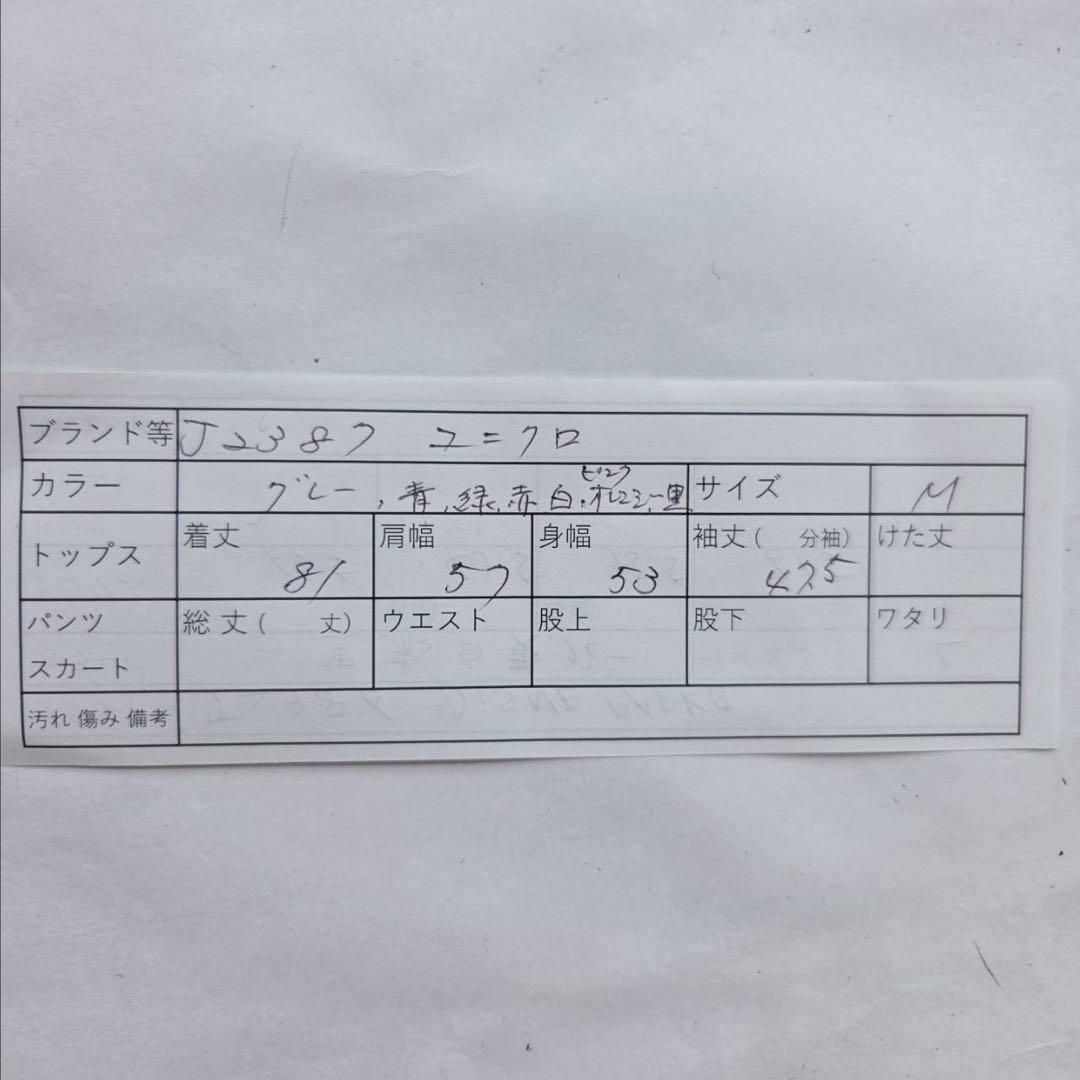 ブランド等 J2387 ユニクロ
ピンク
カラー グレー,青,緑,赤,白,オレンジ,黒 サイズ M
トップス 着丈 肩幅 身幅 袖丈( 分袖) けた丈
81 57 53 47.5
パンツ 総丈( 丈) ウエスト 股上 股下 ワタリ
スカート
汚れ 傷み 備考